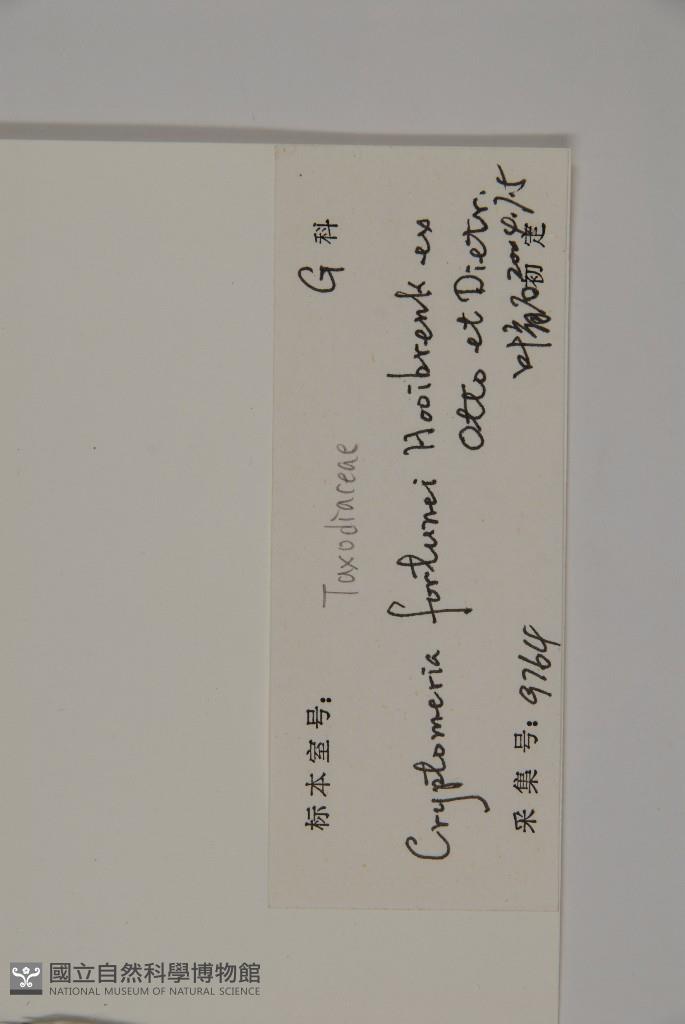 标本室号:
G 科
Taxodiaceae
Cryptomeria fortunei Hooibrenk ex
Otto et Dietr.
采集号: 9764
初 定
2004.7.5
國立自然科學博物館
NATIONAL MUSEUM OF NATURAL SCIENCE